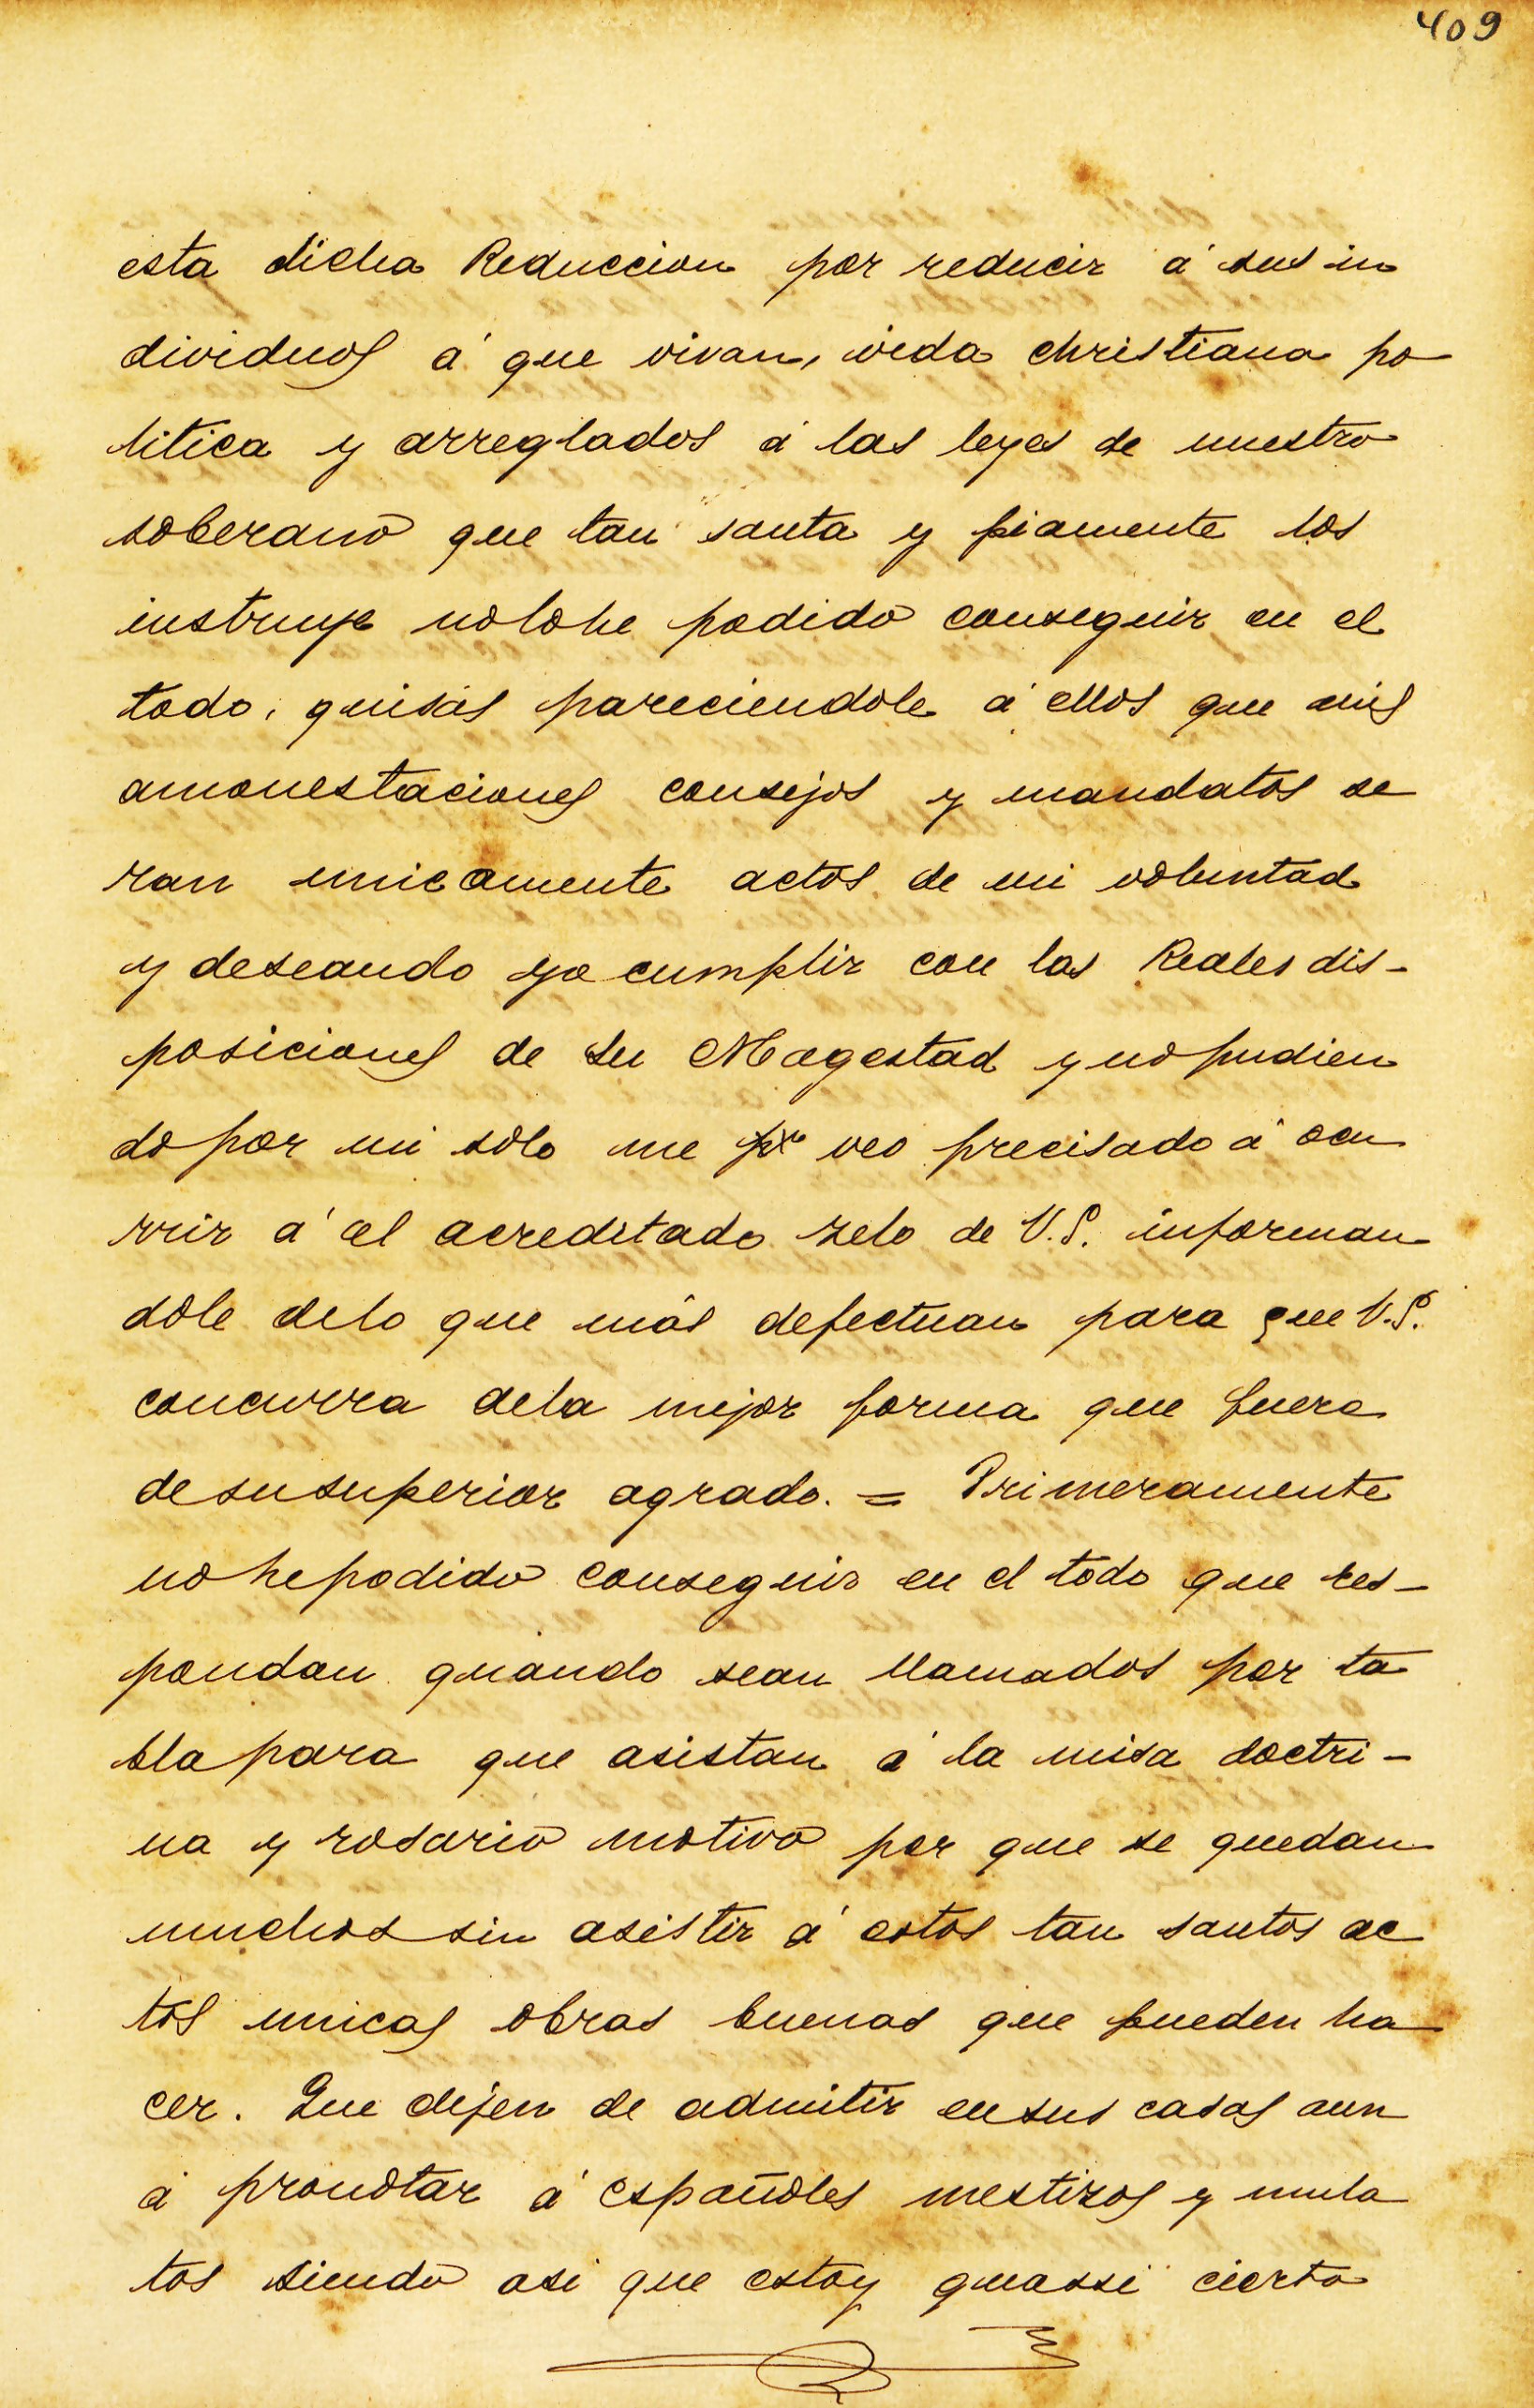 409
esta dicha Reduccion por reducir á sus in
dividuos á que vivan, vida christiana po
litica y arreglados á las leyes de nuestro
soberano que tan santa y piamente los
instruye nolohe podido conseguir en el
todo, quisás pareciendole á ellos que mis
amonestaciones consejos y mandatos se
ran unicamente actos de mi voluntad
y deseando yo cumplir con las Reales dis-
posiciones de su Magestad y no pudien
do por mi solo me veo precisado á ocu
rrir á el acreditado zelo de V.S. informan
dole delo que más defectuan para que V.S.
concurra dela mejor forma que fuere
de su superior agrado. = Primeramente
no he podido conseguir en el todo que res-
pondan quando sean llamados por ta
bla para que asistan á la misa doctri-
na y rosario motivo por que se quedan
muchos sin asistir á estos tan santos ac
tos unicas obras buenas que pueden ha
cer. Que dejen de admitir en sus casas aun
á pronotar á españoles mestizos y mula
tos siendo asi que estoy quassi cierto